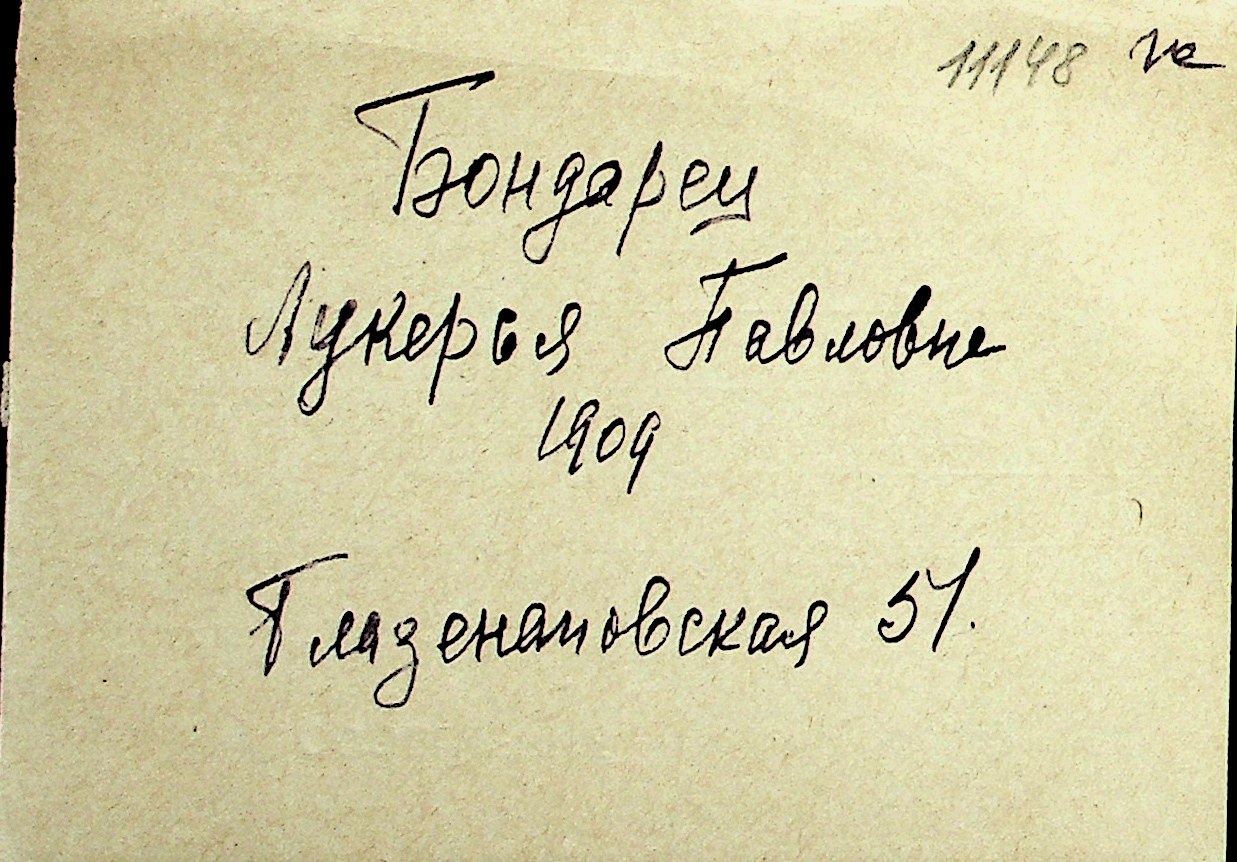 11148
Бондарец
Лукерья Павловна
1909
Глазенаповская 51.